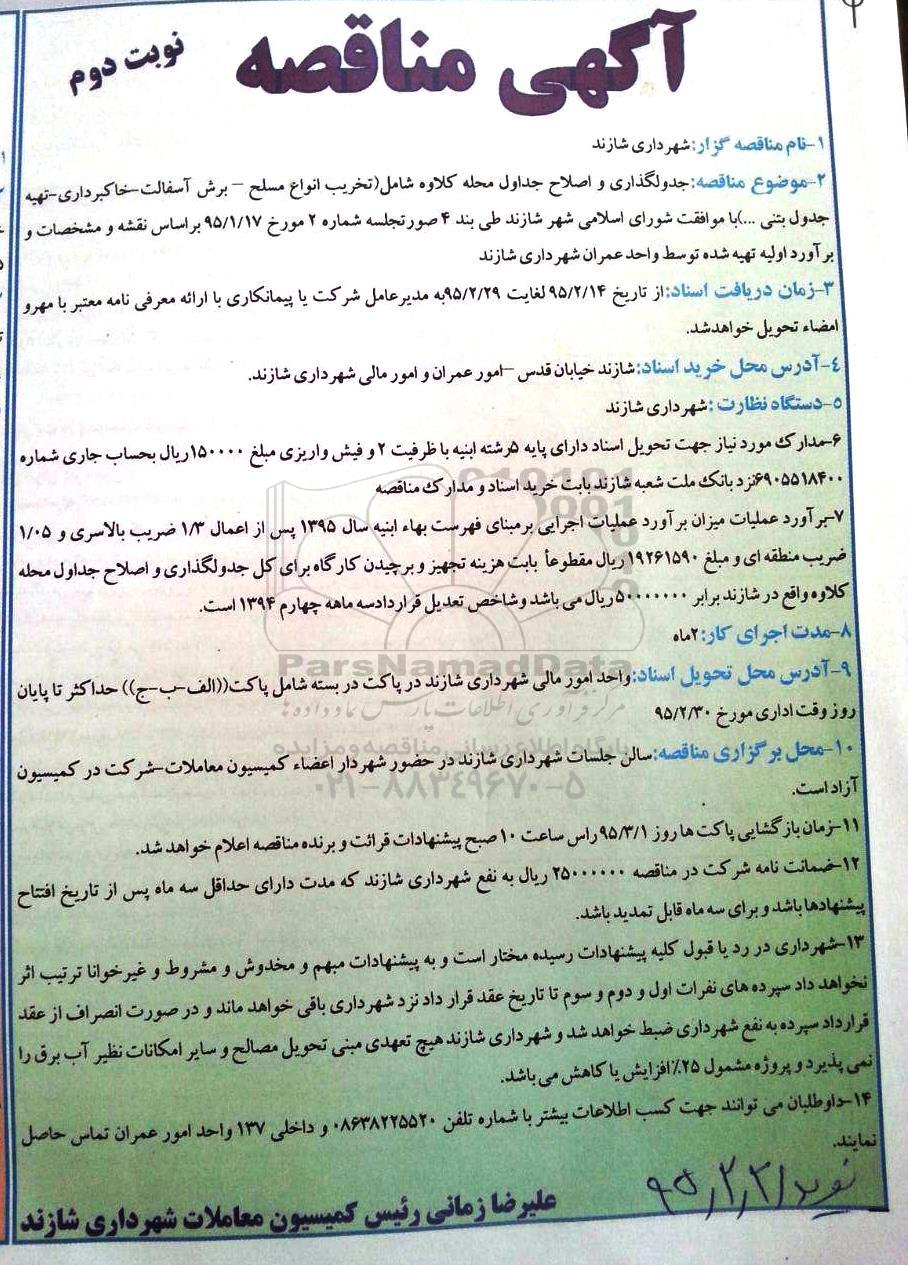 آگهی مناقصه
نوبت دوم
۱-نام مناقصه گزار:شهرداری شازند
۲-موضوع مناقصه:جدولگذاری و اصلاح جداول محله کلاوه شامل(تخریب انواع مسلح – برش آسفالت-خاکبرداری-تهیه
جدول بتنی ...)با موافقت شورای اسلامی شهر شازند طی بند ۴ صورتجلسه شماره ۲ مورخ ۹۵/۱/۱۷ براساس نقشه و مشخصات و
برآورد اولیه تهیه شده توسط واحد عمران شهرداری شازند
۳-زمان دریافت اسناد:از تاریخ ۹۵/۲/۱۴ لغایت ۹۵/۲/۲۹به مدیرعامل شرکت یا پیمانکاری با ارائه معرفی نامه معتبر با مهرو
امضاء تحویل خواهدشد.
۴-آدرس محل خرید اسناد:شازند خیابان قدس –امور عمران و امور مالی شهرداری شازند.
۵-دستگاه نظارت :شهرداری شازند
۶-مدارک مورد نیاز جهت تحویل اسناد دارای پایه ۵رشته ابنیه با ظرفیت ۲ و فیش واریزی مبلغ ۱۵۰۰۰۰ریال بحساب جاری شماره
۶۹۰۵۵۱۸۴۰۰نزد بانک ملت شعبه شازند بابت خرید اسناد و مدارک مناقصه
۷-برآورد عملیات میزان برآورد عملیات اجرایی برمبنای فهرست بهاء ابنیه سال ۱۳۹۵ پس از اعمال ۱/۳ ضریب بالاسری و ۱/۰۵
ضریب منطقه ای و مبلغ ۱۹۲۶۱۵۹۰ ریال مقطوعاً بابت هزینه تجهیز و برچیدن کارگاه برای کل جدولگذاری و اصلاح جداول محله
کلاوه واقع در شازند برابر ۵۰۰۰۰۰۰۰۰ریال می باشد وشاخص تعدیل قراردادسه ماهه چهارم ۱۳۹۴ است.
۸-مدت اجرای کار:۲ماه
۹-آدرس محل تحویل اسناد:واحد امور مالی شهرداری شازند در پاکت در بسته شامل پاکت((الف-ب-ج)) حداکثر تا پایان
روز وقت اداری مورخ ۹۵/۲/۳۰
۱۰-محل برگزاری مناقصه:سالن جلسات شهرداری شازند در حضور شهردار اعضاء کمیسیون معاملات-شرکت در کمیسیون
آزاد است.
۱۱-زمان بازگشایی پاکت ها روز ۹۵/۳/۱راس ساعت ۱۰ صبح پیشنهادات قرائت و برنده مناقصه اعلام خواهد شد.
۱۲-ضمانت نامه شرکت در مناقصه ۲۵۰۰۰۰۰۰ ریال به نفع شهرداری شازند که مدت دارای حداقل سه ماه پس از تاریخ افتتاح
پیشنهادها باشد و برای سه ماه قابل تمدید باشد.
۱۳-شهرداری در رد یا قبول کلیه پیشنهادات رسیده مختار است و به پیشنهادات مبهم و مخدوش و مشروط و غیرخوانا ترتیب اثر
نخواهد داد سپرده های نفرات اول و دوم و سوم تا تاریخ عقد قرار داد نزد شهرداری باقی خواهد ماند و در صورت انصراف از عقد
قرارداد سپرده به نفع شهرداری ضبط خواهد شد و شهرداری شازند هیچ تعهدی مبنی تحویل مصالح و سایر امکانات نظیر آب برق را
نمی پذیرد و پروژه مشمول ۲۵٪افزایش یا کاهش می باشد.
۱۴-داوطلبان می توانند جهت کسب اطلاعات بیشتر با شماره تلفن ۰۸۶۳۸۲۲۵۵۲۰ و داخلی ۱۳۷ واحد امور عمران تماس حاصل
نمایند.
علیرضا زمانی رئیس کمیسیون معاملات شهرداری شازند
ParsNamadData
مرکز فرآوری اطلاعات پارس نماد داده ها
پایگاه اطلاع رسانی مناقصه و مزایده
۰۲۱-۸۸۳۴۹۶۷۰-۵